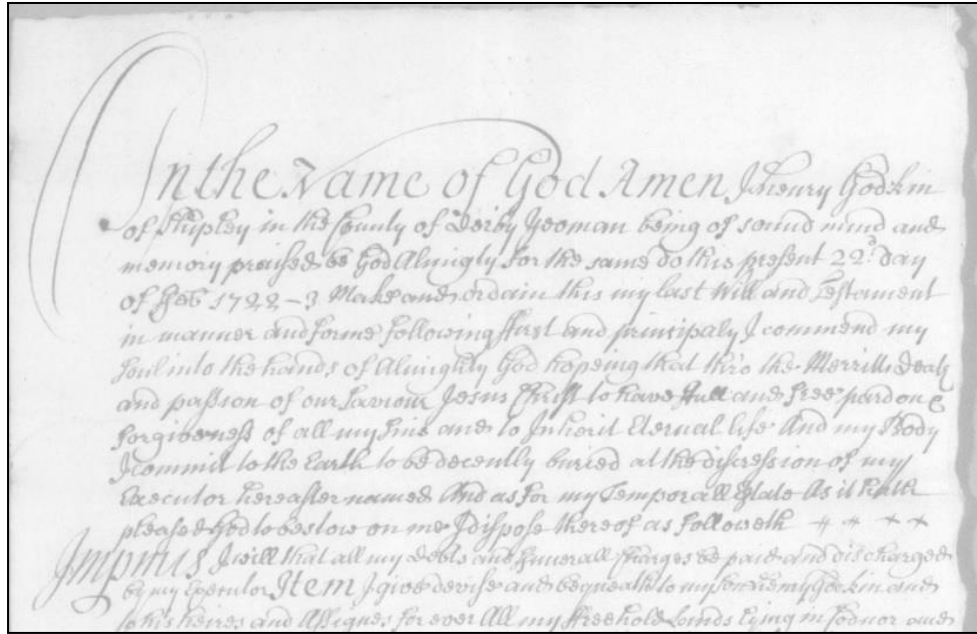 In the Name of God Amen I Henry Godkin
of Shipley in the County of Derby Yeoman being of sound mind and
memory praised be God Almigly for the same do this present 22d day
of Feb 1722-3 Make and ordain this my last Will and Testament
in manner and forme following ffirst and principaly I commend my
soul into the hands of Almighty God hopeing that thro the Merritts Death
and passon of our Saviour Jesus Christ to have full and free pardon &
forgiveness of all my sins and to Inherit Eternal life And my Body
I commit to the Earth to be decently buried at the discression of my
Executor hereafter named And as for my Temporall Estate As it hath
pleased God to bestow on me I dispose thereof as followeth
Imprius I will that all my Debts and funerall Charges be paid and discharged
by my Executor Item I give devise and bequeath to my son Henry Godkin and
to his heires and Assignes for ever All my ffreehold Lands Lying in Codnor and